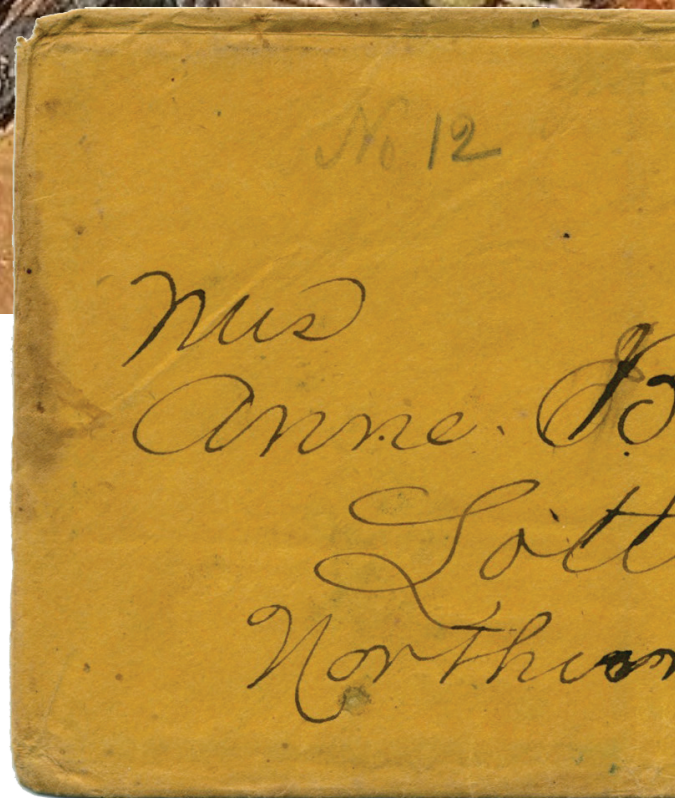 No 12
Mrs
Anne. B
Lott
Northum